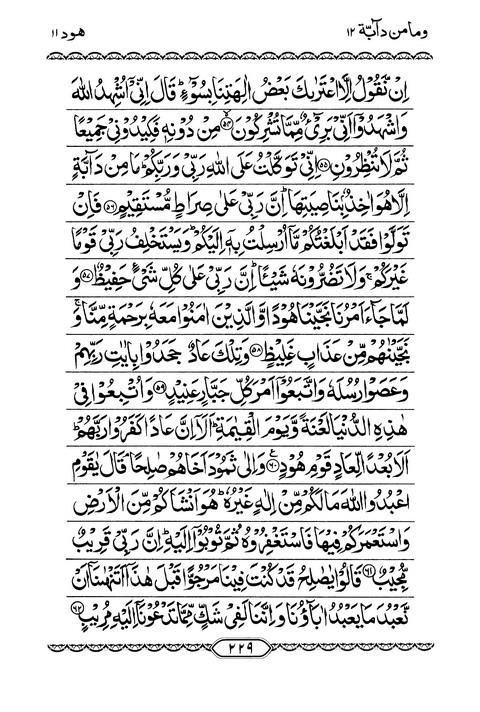 وما من دآبّة ١٢
هود ١١
اِنْ نَّقُوْلُ اِلَّا اعْتَرٰىكَ بَعْضُ اٰلِهَتِنَا بِسُوْٓءٍ ؕ قَالَ اِنِّيْۤ اُشْهِدُ اللّٰهَ
وَاشْهَدُوْۤا اَنِّيْ بَرِيْٓءٌ مِّمَّا تُشْرِكُوْنَ ۙ﴿۵۴﴾ مِنْ دُوْنِهٖ فَكِيْدُوْنِيْ جَمِيْعًا
ثُمَّ لَا تُنْظِرُوْنِ ﴿۵۵﴾ اِنِّيْ تَوَكَّلْتُ عَلَى اللّٰهِ رَبِّيْ وَرَبِّكُمْ ؕ مَا مِنْ دَآبَّةٍ
اِلَّا هُوَ اٰخِذٌۢ بِنَاصِيَتِهَا ؕ اِنَّ رَبِّيْ عَلٰى صِرَاطٍ مُّسْتَقِيْمٍ ﴿۵۶﴾ فَاِنْ
تَوَلَّوْا فَقَدْ اَبْلَغْتُكُمْ مَّاۤ اُرْسِلْتُ بِهٖۤ اِلَيْكُمْ ؕ وَيَسْتَخْلِفُ رَبِّيْ قَوْمًا
غَيْرَكُمْ ۚ وَلَا تَضُرُّوْنَهٗ شَيْـًٔا ؕ اِنَّ رَبِّيْ عَلٰى كُلِّ شَيْءٍ حَفِيْظٌ ﴿۵۷﴾ وَ
لَمَّا جَآءَ اَمْرُنَا نَجَّيْنَا هُوْدًا وَّالَّذِيْنَ اٰمَنُوْا مَعَهٗ بِرَحْمَةٍ مِّنَّا ۚ وَ
نَجَّيْنٰهُمْ مِّنْ عَذَابٍ غَلِيْظٍ ﴿۵۸﴾ وَتِلْكَ عَادٌ ۙ جَحَدُوْا بِاٰيٰتِ رَبِّهِمْ
وَعَصَوْا رُسُلَهٗ وَاتَّبَعُوْۤا اَمْرَ كُلِّ جَبَّارٍ عَنِيْدٍ ﴿۵۹﴾ وَاُتْبِعُوْا فِيْ
هٰذِهِ الدُّنْيَا لَعْنَةً وَّيَوْمَ الْقِيٰمَةِ ؕ اَلَاۤ اِنَّ عَادًا كَفَرُوْا رَبَّهُمْ ؕ
اَلَا بُعْدًا لِّعَادٍ قَوْمِ هُوْدٍ ﴿۶۰﴾ وَاِلٰى ثَمُوْدَ اَخَاهُمْ صٰلِحًا ۘ قَالَ يٰقَوْمِ
اعْبُدُوا اللّٰهَ مَا لَكُمْ مِّنْ اِلٰهٍ غَيْرُهٗ ؕ هُوَ اَنْشَاَكُمْ مِّنَ الْاَرْضِ
وَاسْتَعْمَرَكُمْ فِيْهَا فَاسْتَغْفِرُوْهُ ثُمَّ تُوْبُوْۤا اِلَيْهِ ؕ اِنَّ رَبِّيْ قَرِيْبٌ
مُّجِيْبٌ ﴿۶۱﴾ قَالُوْا يٰصٰلِحُ قَدْ كُنْتَ فِيْنَا مَرْجُوًّا قَبْلَ هٰذَاۤ اَتَنْهٰىنَاۤ اَنْ
نَّعْبُدَ مَا يَعْبُدُ اٰبَآؤُنَا وَاِنَّنَا لَفِيْ شَكٍّ مِّمَّا تَدْعُوْنَاۤ اِلَيْهِ مُرِيْبٍ ﴿۶۲﴾
٢٢٩